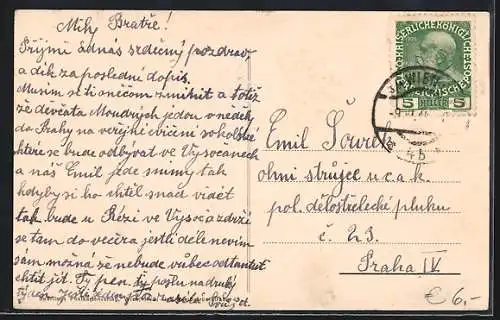 Milý Bratře!
Přijmi od nás srdečný pozdrav
a dík za poslední dopis.
Musím se ti o něčem zmínit a totiž
že děvčata Moudrých jedou v neděli
do Prahy na veřejní cvičení sokolské
které se bude odbývat ve Vysočanech
a náš Emil jede s nimi tak
kdyby si ho chtěl snad vidět
tak bude u Rézi ve Vysoč a zdrží
se tam do večera jestli déle nevím
sám možná že nebude vůbec odtamtut
chtít jít. Ty pen. ty pošlu na druhý
týden jestli
KAISERLICHE KÖNIGLICHE
ÖSTERREICHISCHE POST
5 HELLER 5
WIEN
4b
Emil
ohni strůjce u c. a k.
pol. dělostřelecké pluku
č. 23.
Praha IV.
€ 6,-